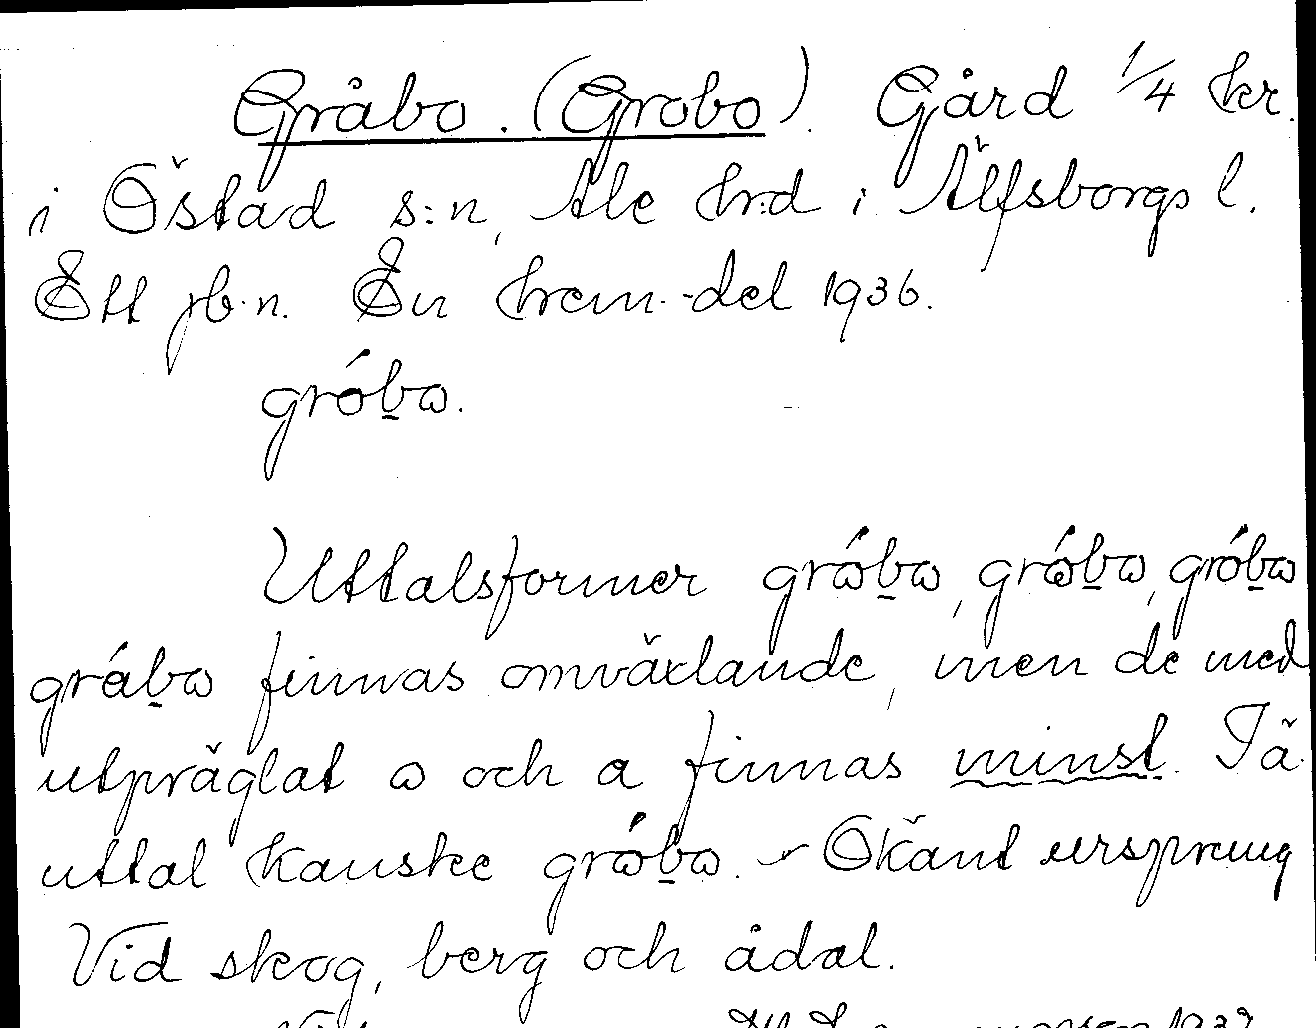 Gråbo. (Grobo). Gård 1/4 kr.
i Östad s:n, Ale hrd i Älfsborgs l.
Ett jb.n. En hem.-del 1936.
gróbω.
Uttalsformer grǻbω, grǻbω, gróbω
grábω finnas omväxlande, men de med
utpräglat ω och a finnas minst. Tä.
uttal kanske grǻbω. - Okänt ursprung
Vid skog, berg och ådal.
1937